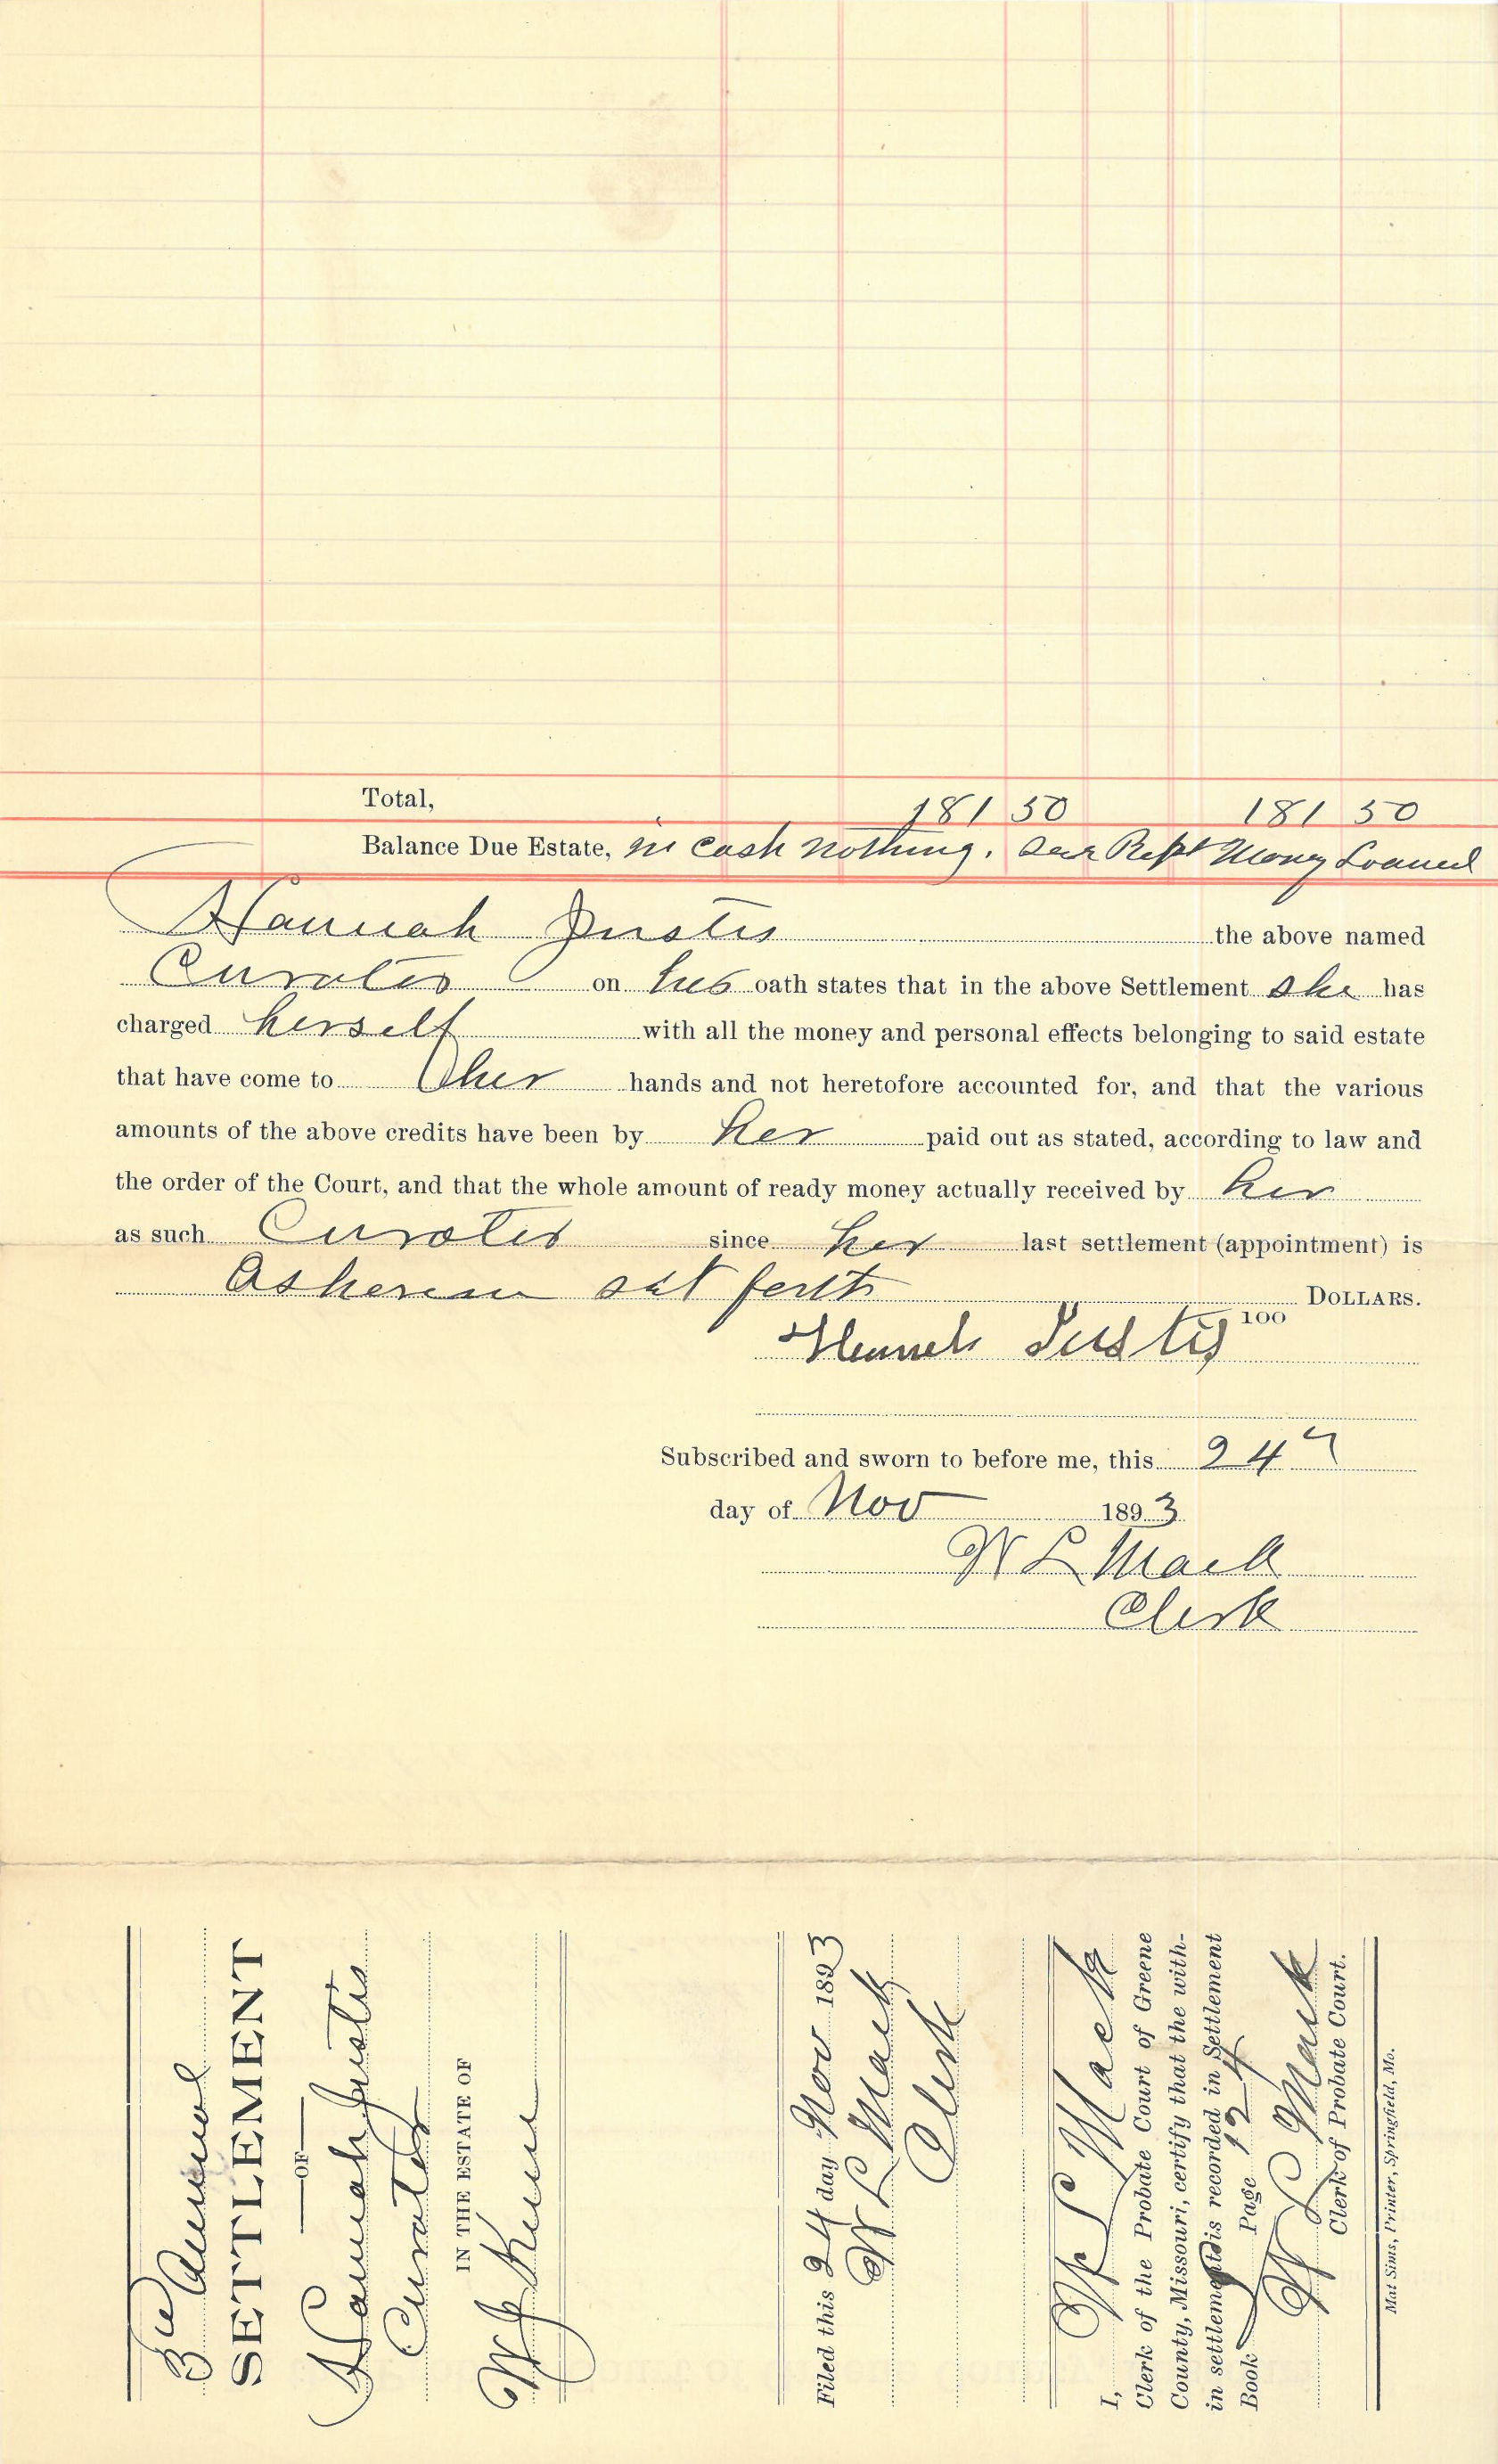 Total, 181 50 181 50
Balance Due Estate, in Cash nothing. See Rept Money Loaned
Hannah Justis the above named
Curator on her oath states that in the above Settlement she has
charged herself with all the money and personal effects belonging to said estate
that have come to her hands and not heretofore accounted for, and that the various
amounts of the above credits have been by her paid out as stated, according to law and
the order of the Court, and that the whole amount of ready money actually received by her
as such Curator since her last settlement (appointment) is
As herein set forth 100 DOLLARS.
Hannah Justis
Subscribed and sworn to before me, this 24
day of Nov 1893
W L Mack
Clerk
3rd Annual
SETTLEMENT
OF
Hannah Justis
Curator
IN THE ESTATE OF
W J
Filed this 24 day Nov 1893
W L Mack
Clerk
I, W L Mack
Clerk of the Probate Court of Greene
County, Missouri, certify that the with-
in settlement is recorded in Settlement
Book J Page 124
W L Mack
Clerk of Probate Court.
Mat Sims, Printer, Springfield, Mo.